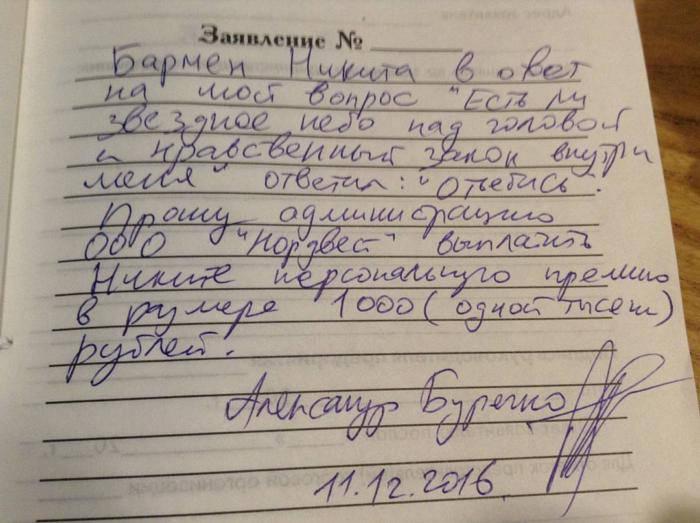 Заявление №
Бармен Никита в овет
на мой вопрос "Есть ли
звездное небо над головой
и нравственный закон внутри
меня" ответил: "Отъебись".
Прошу администрацию
ООО "Нордвест" выплатить
Никите персональную премию
в размере 1000 (одной тысячи)
рублей.
Александр
11.12.2016